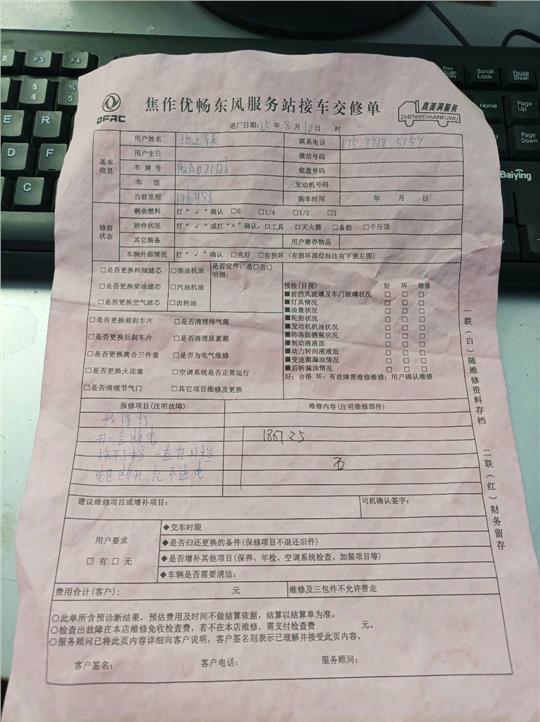 DFAC
焦作优畅东风服务站接车交修单
真美满服务
ZHENMEIMANFUWU
进厂日期:25年8月10日 时
基本信息
用户姓名
联系电话
用户生日 微信号码
车牌号 底盘号码
车型 发动机号码
当前里程 176458 购车时间 年 月 日
修前状态
剩余燃料 打“√”确认 □0 □1/4 □1/2 □1
附件状况 打“√”或打“×”确认:□工具 □灭火器 □备胎 □千斤顶
其它装备 用户寄存物品
车辆外部情况 打“√”确认 □完好 □有损坏(有损坏部位标注有下表左图)
□是否更换机油滤芯 □柴油机油 是否定件:是□否□
明细:
□是否更换柴油滤芯 □汽油机油
□是否更换空气滤芯 □齿轮油
□是否更换前刹车片 □是否清理排气筒
□是否更换后刹车片 □是否清理尿素箱
□是否更换离合三件套 □是否为电气维修
□是否更换火花塞 □空调系统是否正常运行
□是否清理节气门 □其它项目维修及更换
预检(目视) 好 坏 维修
■前挡风玻璃及车门玻璃状况 □ □ □
■灯具情况 □ □ □
■油量状况 □ □ □
■轮胎状况 □ □ □
■发动机机油状况 □ □ □
■防冻防锈瓶状况 □ □ □
■制动液液面 □ □ □
■动力转向液液面 □ □ □
■变速箱漏油情况 □ □ □
■后桥漏油情况 □ □ □
好:合格 坏:有故障需维修维修,用户确认维修
报修项目(注明故障) 维修内容(注明维修部件)
故障灯
1867.25
建议维修项目或增补项目: 司机确认签字:
用户要求
□有□无
◆交车时限
◆是否归还更换的备件(保修项目不退还旧件)
◆是否增补其他项目(保养、年检、空调系统检查、加装项目等)
◆车辆是否需要清洁:
费用合计(客户): 元 维修及三包件不允许带走
○此单所含预诊断结果,预估费用及时间不做结算依据,结算以结算单为准。
○检查出故障在本店维修免收检查费,若不在本店维修,需支付检查费 元。
○服务顾问已将此页内容详细向客户说明,客户签名则表示已理解并接受此页内容。
客户签名: 客户电话: 服务顾问:
一联(白)随维修资料存档
二联(红)财务留存
Scroll Lock
Pause Break
Baiying